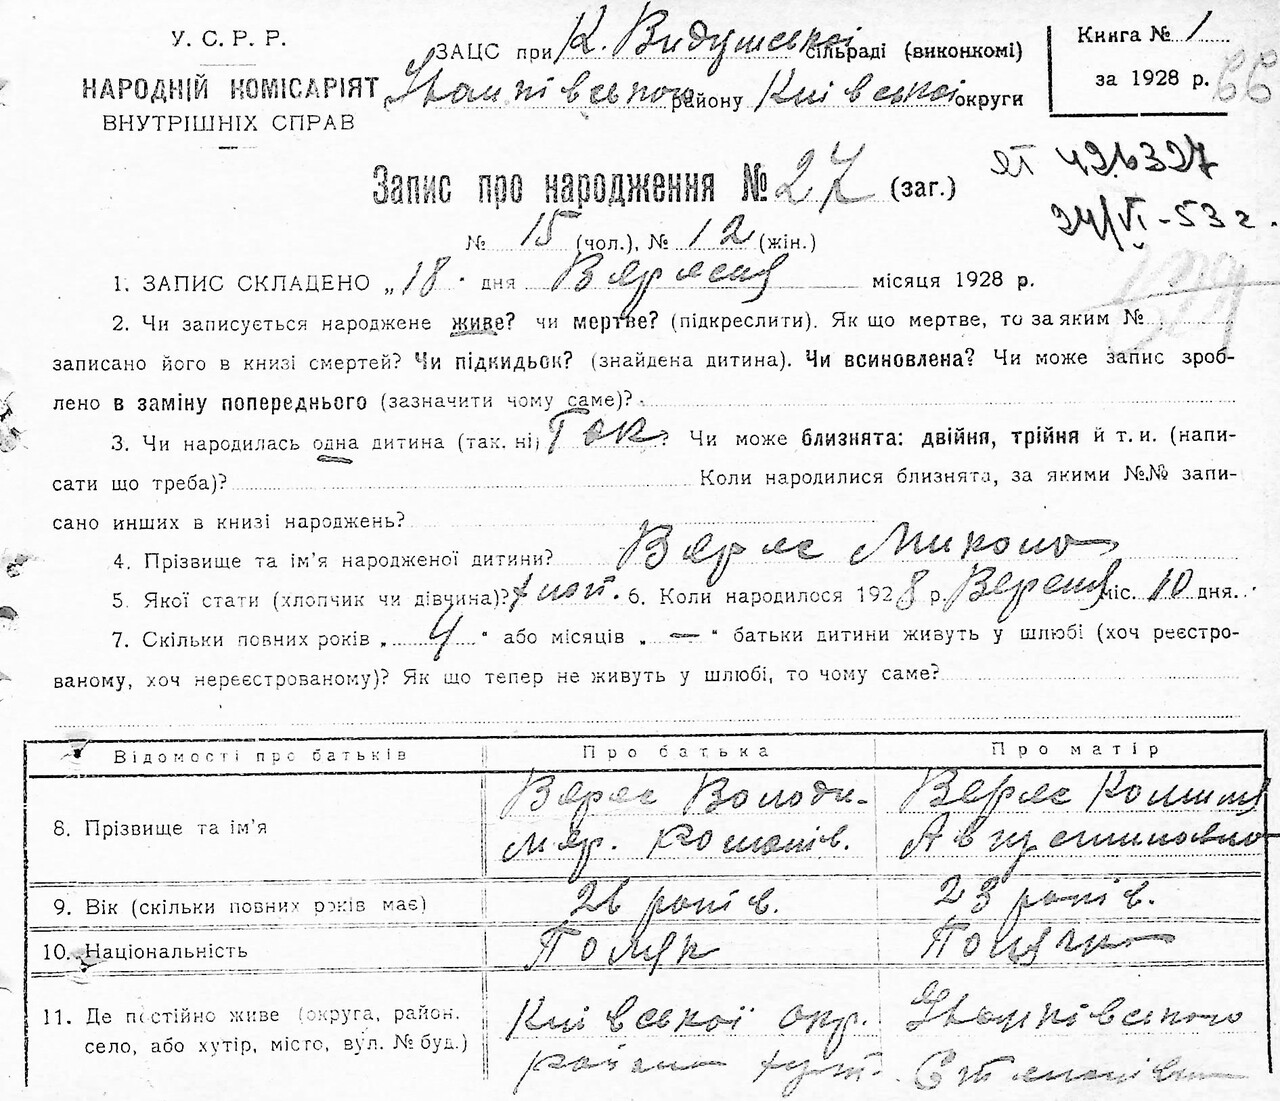 У. С. Р. Р.
НАРОДНІЙ КОМІСАРІЯТ
ВНУТРІШНІХ СПРАВ
ЗАЦС при К. Видумської сільраді (виконкомі)
Іванківського району Київської округи
Книга № 1
за 1928 р.
66
Запис про народження № 27 (заг.)
№ 15 (чол.), № 12 (жін.)
426327
24/VI-53 г.
1. ЗАПИС СКЛАДЕНО „ 18 " дня Вересня місяця 1928 р.
2. Чи записується народжене живе? чи мертве? (підкреслити). Як що мертве, то за яким №
записано його в книзі смертей? Чи підкидьок? (знайдена дитина). Чи всиновлена? Чи може запис зроб-
лено в заміну попереднього (зазначити чому саме)?
3. Чи народилась одна дитина (так. ні) Так ? Чи може близнята: двійня, трійня й т. и. (напи-
сати що треба)? Коли народилися близнята, за якими №№ запи-
сано инших в книзі народжень?
4. Прізвище та ім'я народженої дитини? Верес Микола
5. Якої стати (хлопчик чи дівчина)? хлоп. 6. Коли народилося 1928 р. Вересня міс. 10 дня.
7. Скільки повних років „ 4 " або місяців „ — " батьки дитини живуть у шлюбі (хоч реєстро-
ваному, хоч нереєстрованому)? Як що тепер не живуть у шлюбі, то чому саме?
Відомості про батьків Про батька Про матір
8. Прізвище та ім'я Верес Володи- Верес
мер.
9. Вік (скільки повних років має) 26 років. 23 років.
10. Національність Поляк Полячка
11. Де постійно живе (округа, район, Київської окр. Іванківського
село, або хутір, місто, вул. № буд.) району хут.